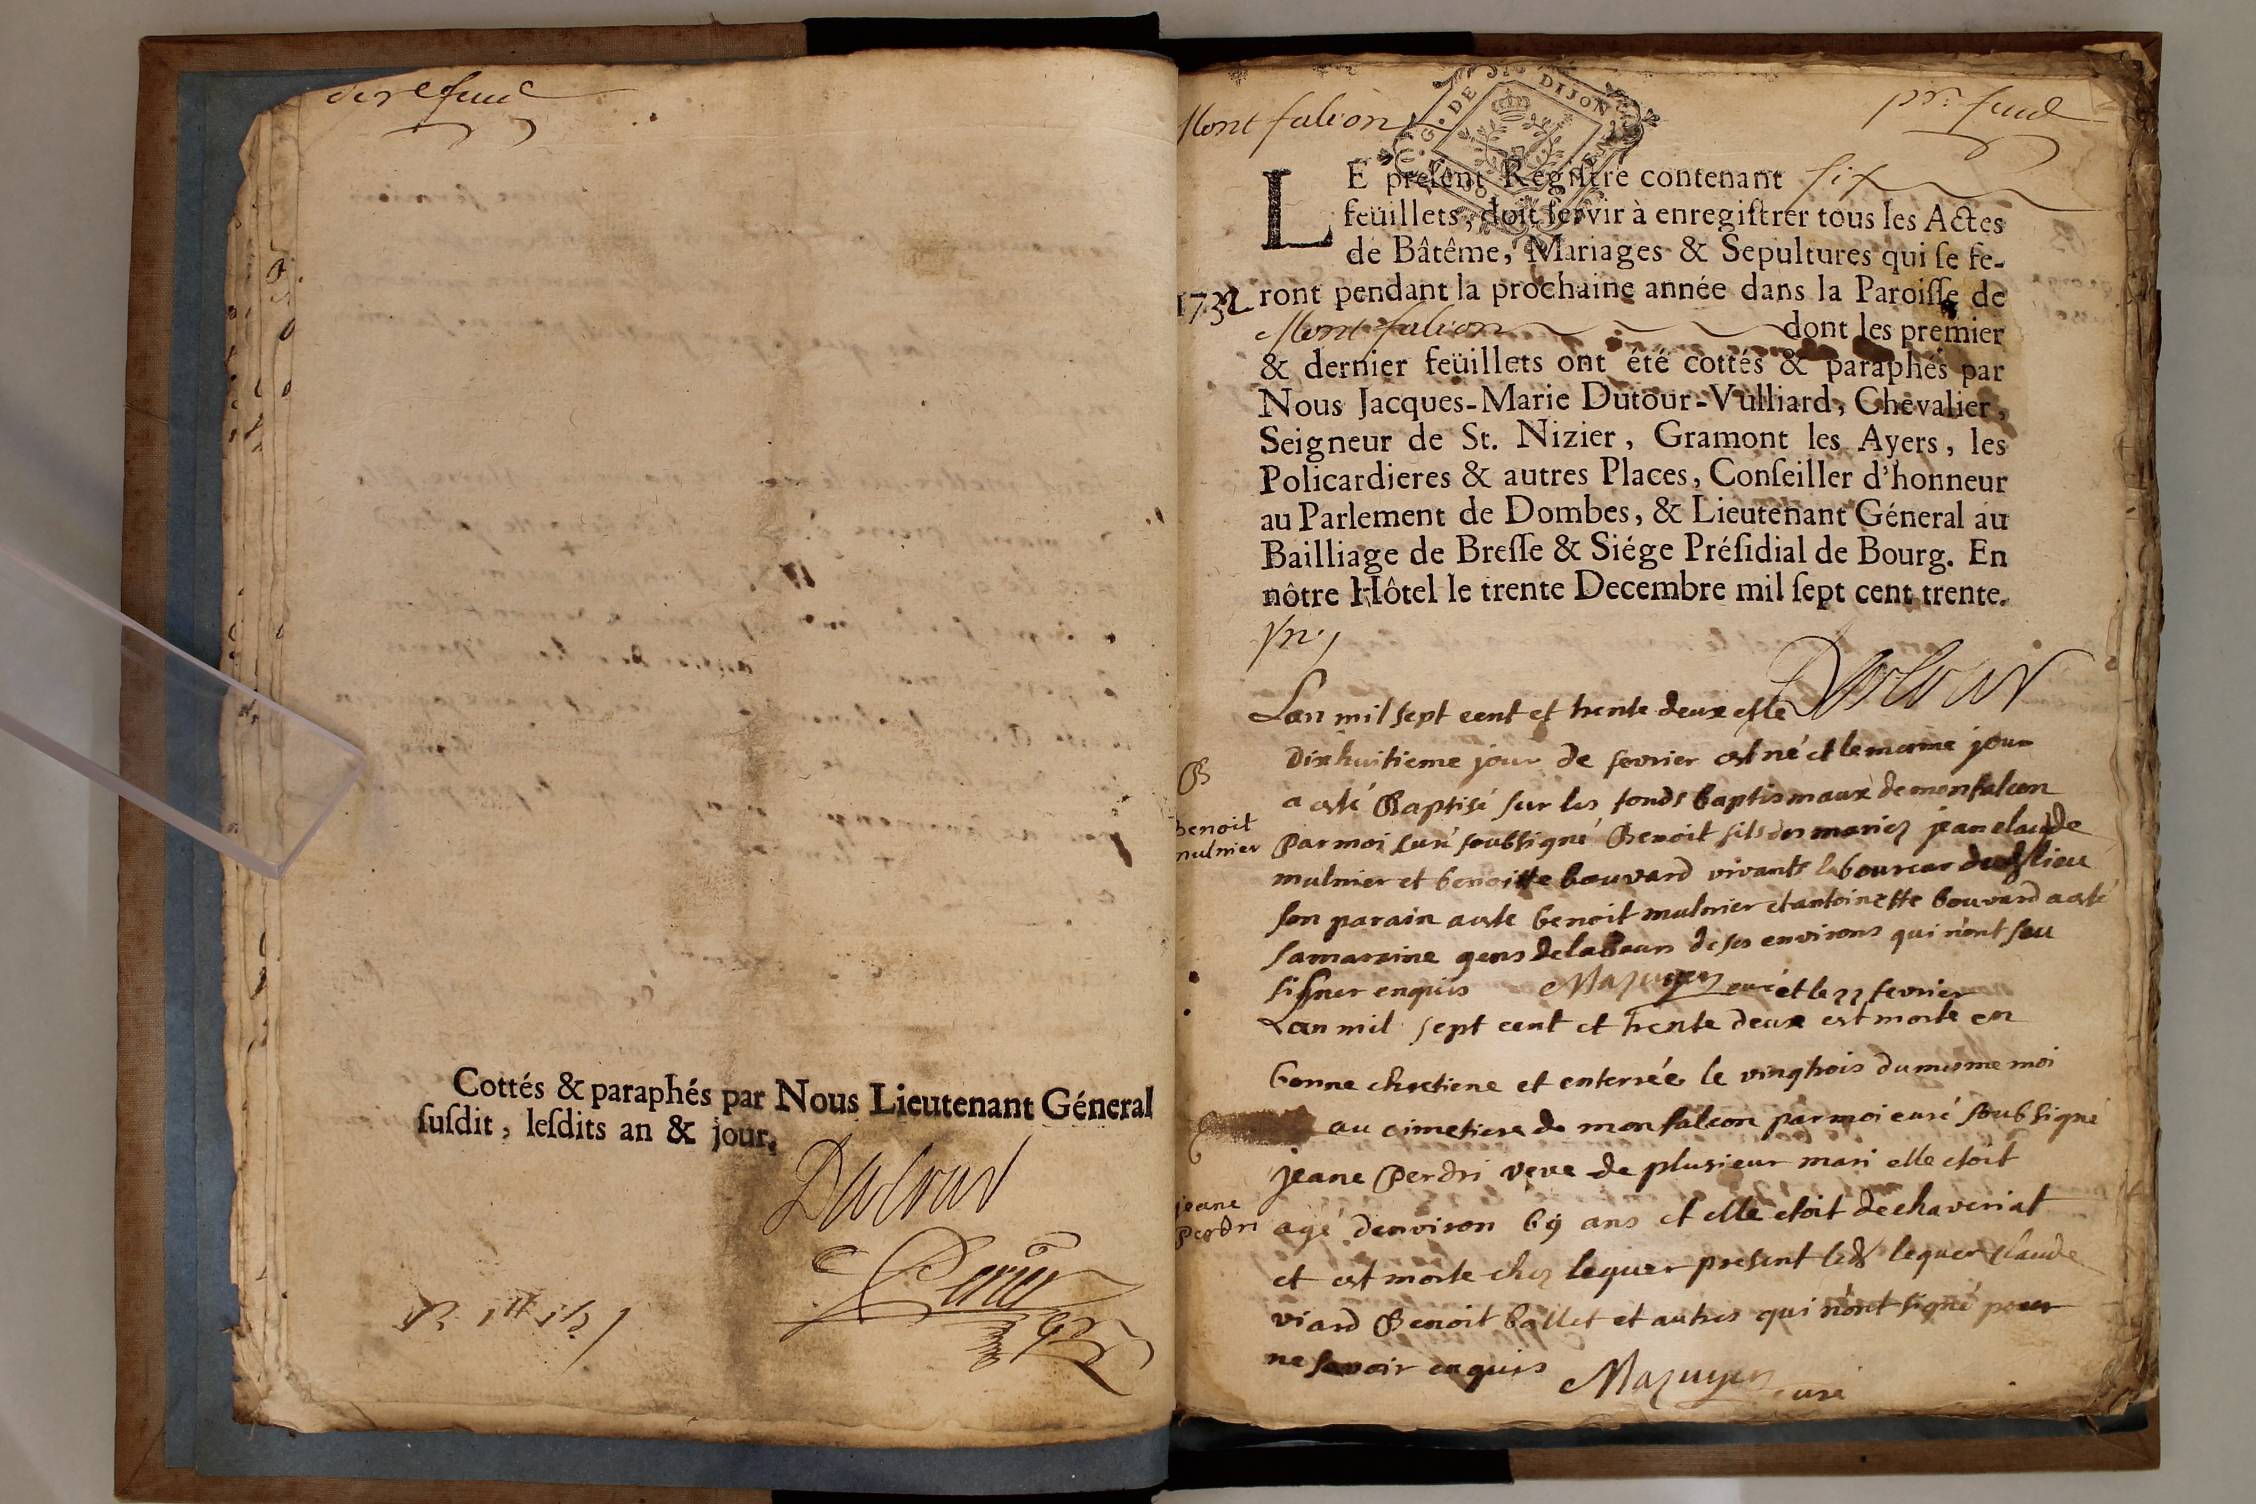 Cottés & paraphés par Nous Lieutenant Géneral
suſdit, leſdits an & jour.
Dutour
Mont falcon
G. DE DIJON
LE preſent Regiſtre contenant six
feüillets, doit ſervir à enregiſtrer tous les Actes
de Bâtême, Mariages & Sepultures qui ſe fe-
1732 ront pendant la prochaine année dans la Paroiſſe de
Mont falcon dont les premier
& dernier feüillets ont été cottés & paraphés par
Nous Jacques-Marie Dutour-Vulliard, Chevalier,
Seigneur de St. Nizier, Gramont les Ayers, les
Policardieres & autres Places, Conſeiller d'honneur
au Parlement de Dombes, & Lieutenant Géneral au
Bailliage de Breſſe & Siége Préſidial de Bourg. En
nôtre Hôtel le trente Decembre mil ſept cent trente.
Dutour
Lan mil sept cent et trente deux et le
Dixhuitieme jour de fevrier est né et le meme jour
B
a esté Baptisé sur les fonds baptismaux de monfalcon
Benoit
mulnier
Par moi Curé soubsigné Benoit fils des mariez jean claude
mulnier et benoitte bouvard vivants laboureur dud lieu
son parain a este benoit mulnier et antoinette bouvard a esté
sa maraine gens de labeur de ses environs qui nont seu
signer enquis Mazuyer curé et le 22 fevrier
Lan mil sept cent et trente deux est morte en
bonne chretiene et enterrée le vingtrois du mesme moi
au cimetiere de monfalcon par moi curé soubsigné
jeane Perdri veve de plusieur mari elle etoit
jeane
Perdri
agé denviron 69 ans et elle etoit de chaveriat
et est morte chez lequer present led lequer claude
viard Benoit ballet et autres qui nont signé pour
ne savoir enquis Mazuyer curé